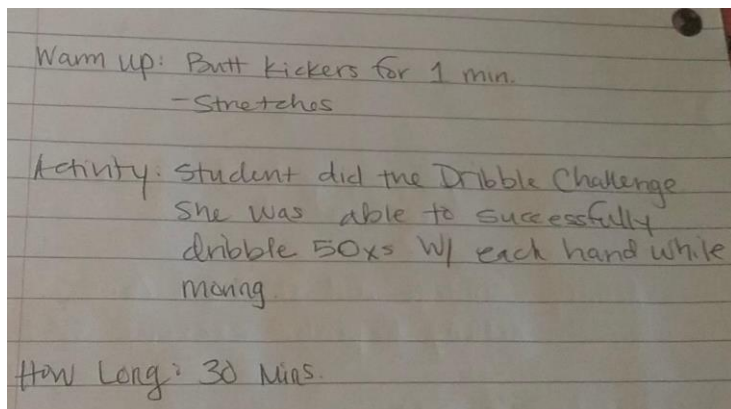 Warm up: Butt kickers for 1 min.
- Stretches
Activity: Student did the Dribble Challenge
She was able to successfully
dribble 50xs W/ each hand while
moving
How Long: 30 Mins.